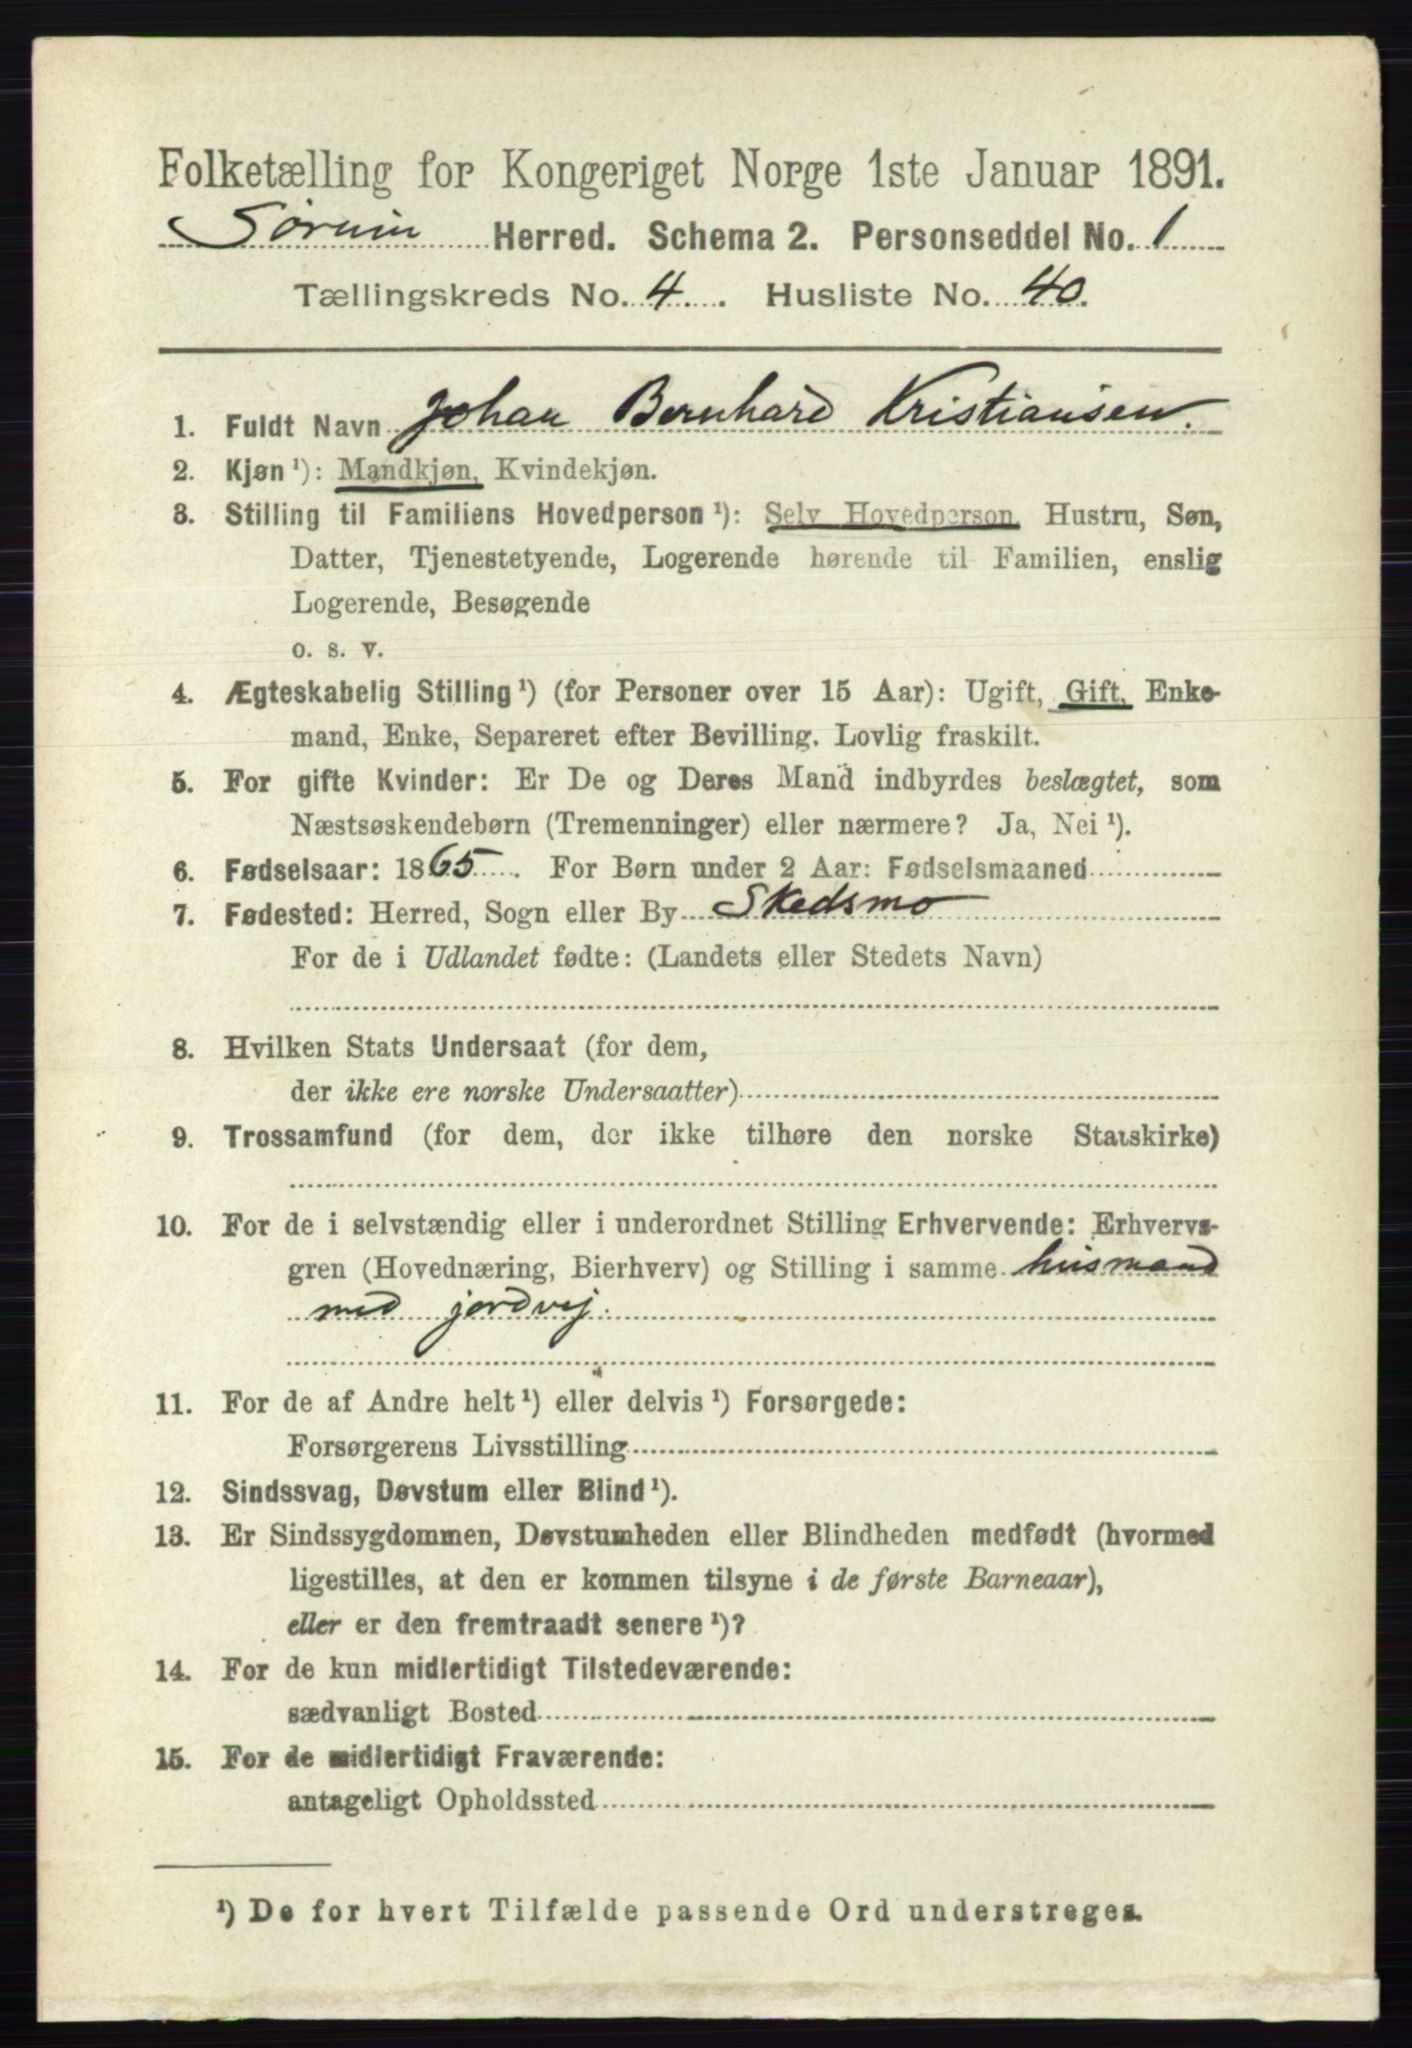 Folketælling for Kongeriget Norge 1ste Januar 1891.
Sørum Herred. Schema 2. Personseddel No. 1
Tællingskreds No. 4. Husliste No. 40.
1. Fuldt Navn Johan Bernhard Kristiansen.
2. Kjøn ¹): Mandkjøn, Kvindekjøn.
3. Stilling til Familiens Hovedperson ¹): Selv Hovedperson, Hustru, Søn,
Datter, Tjenestetyende, Logerende hørende til Familien, enslig
Logerende, Besøgende
o. s. v.
4. Ægteskabelig Stilling ¹) (for Personer over 15 Aar): Ugift, Gift, Enke-
mand, Enke, Separeret efter Bevilling. Lovlig fraskilt.
5. For gifte Kvinder: Er De og Deres Mand indbyrdes beslægtet, som
Næstsøskendebørn (Tremenninger) eller nærmere? Ja, Nei ¹).
6. Fødselsaar: 1865. For Børn under 2 Aar: Fødselsmaaned
7. Fødested: Herred, Sogn eller By Skedsmo
For de i Udlandet fødte: (Landets eller Stedets Navn)
8. Hvilken Stats Undersaat (for dem,
der ikke ere norske Undersaatter)
9. Trossamfund (for dem, der ikke tilhøre den norske Statskirke)
10. For de i selvstændig eller i underordnet Stilling Erhvervende: Erhvervs-
gren (Hovednæring, Bierhverv) og Stilling i samme husmand
med jordvej.
11. For de af Andre helt ¹) eller delvis ¹) Forsørgede:
Forsørgerens Livsstilling
12. Sindssvag, Døvstum eller Blind ¹).
13. Er Sindssygdommen, Døvstumheden eller Blindheden medfødt (hvormed
ligestilles, at den er kommen tilsyne i de første Barneaar),
eller er den fremtraadt senere ¹)?
14. For de kun midlertidigt Tilstedeværende:
sædvanligt Bosted
15. For de midlertidigt Fraværende:
antageligt Opholdssted
¹) De for hvert Tilfælde passende Ord understreges.